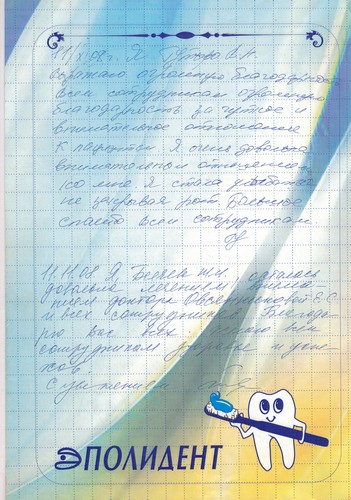 11/XI 08 г. Я
выражаю огромную благодарность
всем сотрудникам огромную
благодарность за чуткое и
внимательное отношение
к пациентам. Я очень довольна
внимательным отношением
ко мне. Я стала улыбаться
не рот. Большое
спасибо всем сотрудникам
11.11.08. Я, осталась
довольна лечением,
доктора
и всех сотрудников. Благода-
рю Вас всех. всем
сотрудникам здоровья и успе-
хов.
С уважением
ЭПОЛИДЕНТ